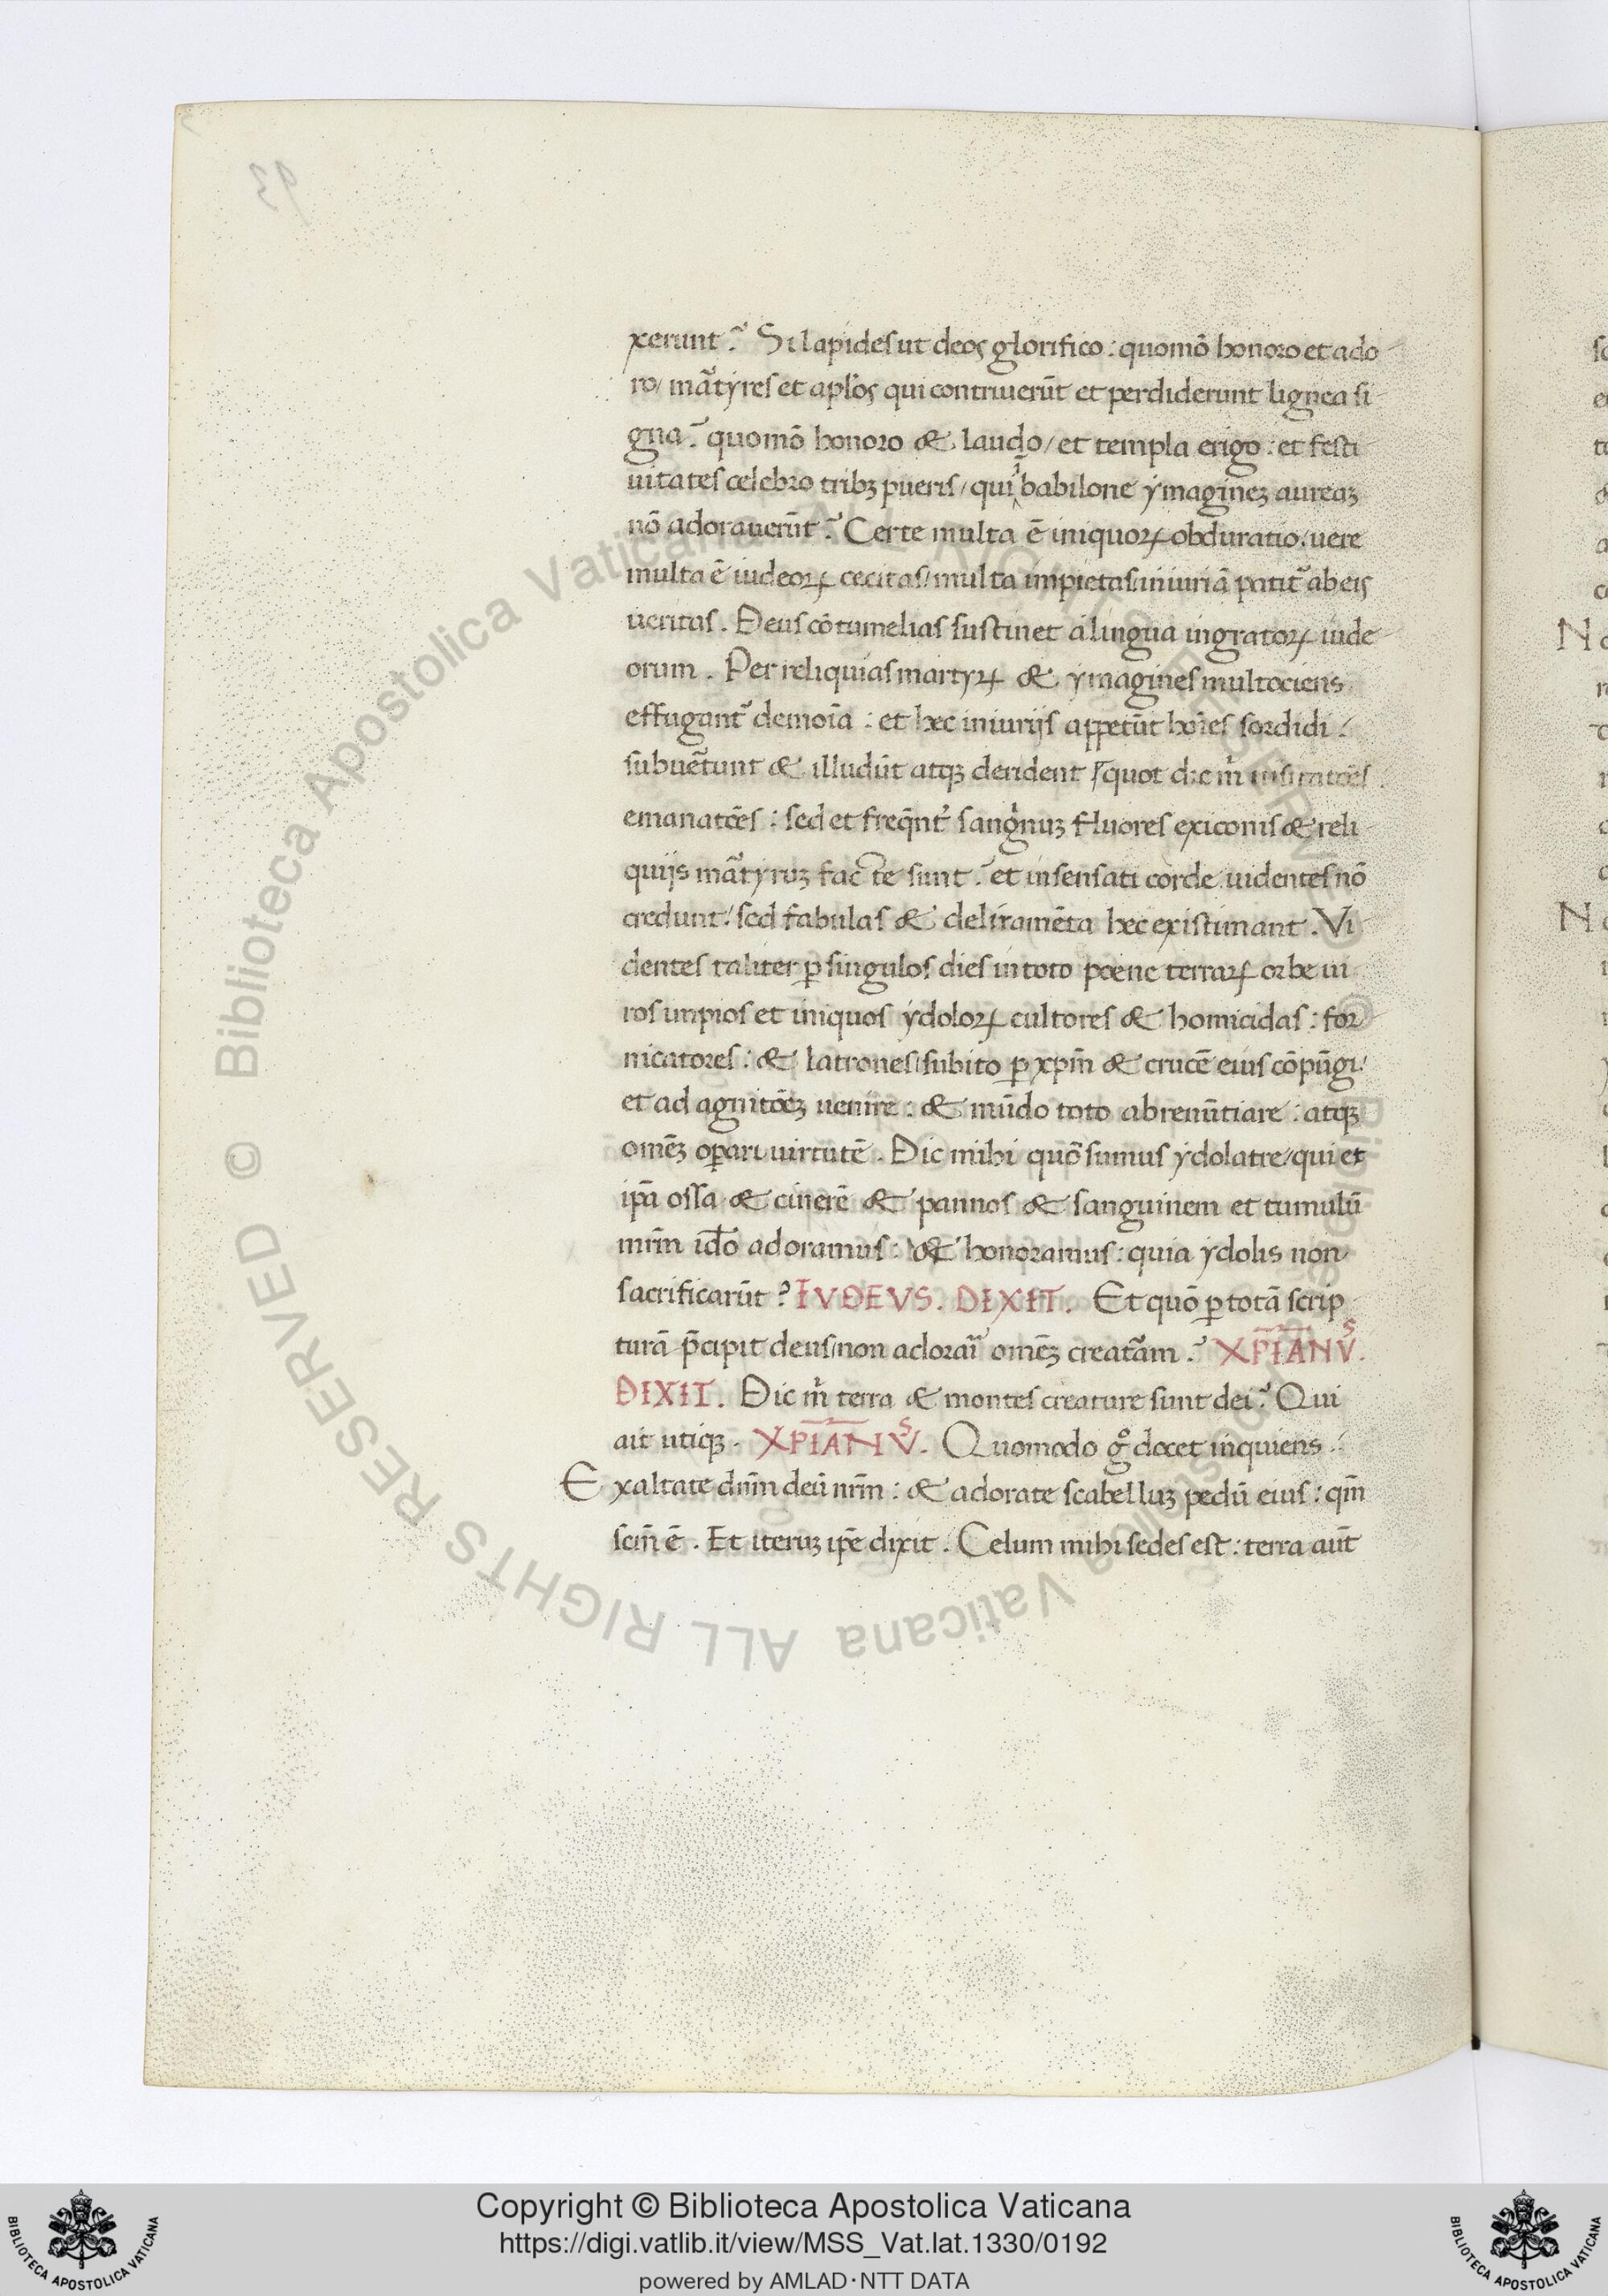 xerunt? Si lapides ut deos glorifico: quomō honoro et ado
ro/ mr̄tyres et apl'os qui contriuerūt et perdiderunt lignea si
gna? quomō honoro & laudo/ et templa erigo: et festi
uitates celebro tribȝ pueris/ qui ī babilone ymagineȝ aureaȝ
nō adorauerūt? Certe multa ē iniquoꝝ obduratio: uere
multa ē iudeoꝝ cecitas/ multa impietas: iniuriā patit᷑ ab eis
ueritas. Deus cōtumelias sustinet a lingua ingratoꝝ iude
orum. Per reliquias martyꝝ & ymagines multociens
effugant᷑ demoīa: et hec iniurijs appetūt hoīes sordidi:
subuētunt & illudūt atqȝ derident quot dic m̄
emanatōes: sed et freqn̄t᷑ sangnuȝ fluores ex iconis & reli
quijs mr̄tyruȝ facte sunt? et insensati corde uidentes nō
credunt: sed fabulas & deliramēta hec existimant. Vi
dentes taliter ꝑ singulos dies in toto poene terraꝝ orbe ui
ros impios et iniquos ydoloꝝ cultores & homicidas: for
nicatores: & latrones/ subito ꝑ xpm̄ & crucē eius cōpūgi
et ad agnitōeȝ uenire: & mūdo toto abrenūtiare: atqȝ
omēȝ oꝑari uirtutē. Dic mihi quō sumus ydolatre/ qui et
ip̄a ossa & cinerē & pannos & sanguinem et tumulū
mr̄m id̄o adoramus: & honoramus: quia ydolis non
sacrificarūt? IVDEVS. DIXIT. Et quō ꝑ totā scrip
turā p̄cipit deus/ non adorari omēȝ creatr̄am? XP̄IANVS.
DIXIT. Dic m̄ terra & montes creature sunt dei? Qui
ait utiqȝ. XP̄IANVS. Quomodo gͦ docet inquiens:
Exaltate dn̄m deū nr̄m: & adorate scabelluȝ pedū eius: qm̄
scm̄ ē. Et iteruȝ ip̄e dixit. Celum mihi sedes est: terra aūt
Copyright © Biblioteca Apostolica Vaticana
https://digi.vatlib.it/view/MSS_Vat.lat.1330/0192
powered by AMLAD·NTT DATA